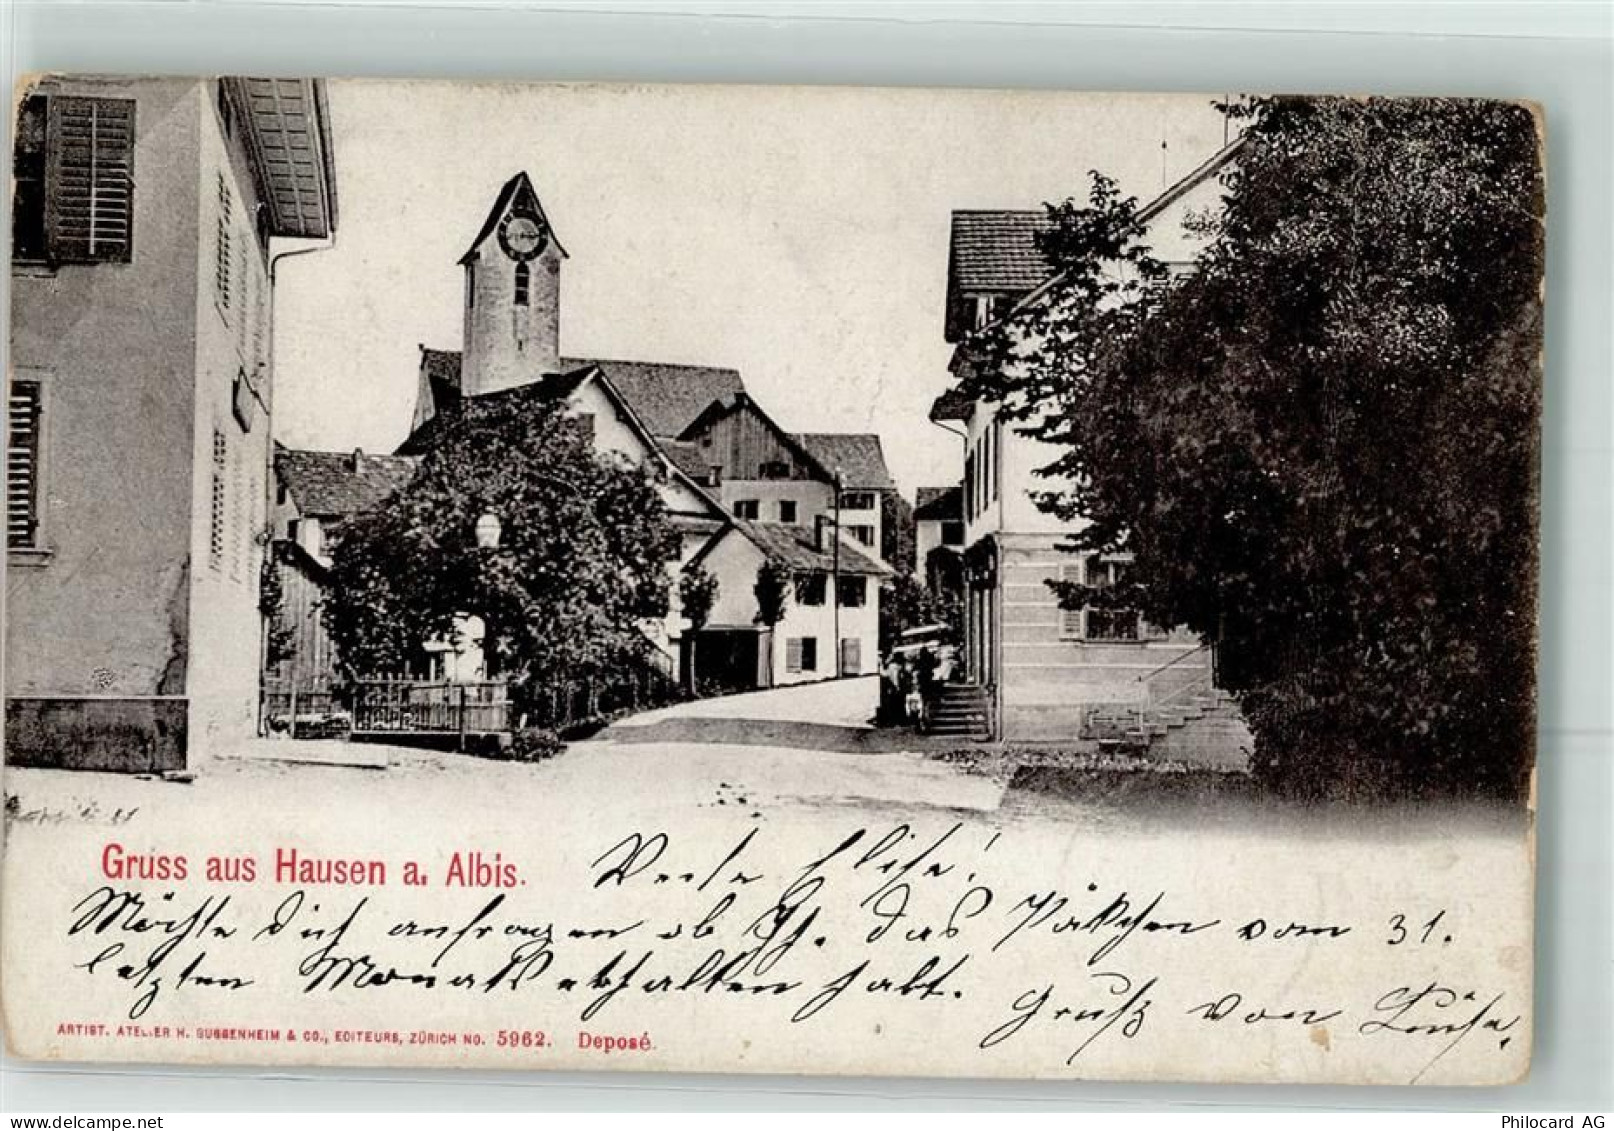 Gruss aus Hausen a. Albis.
Werte Elise!
Möchte Dich anfragen ob Ih. das Päckchen vom 31.
letzten Monats erhalten habt.
Gruß von Louise.
ARTIST. ATELIER H. GUGGENHEIM & CO., EDITEURS, ZÜRICH NO. 5962. Deposé.
Philocard AG